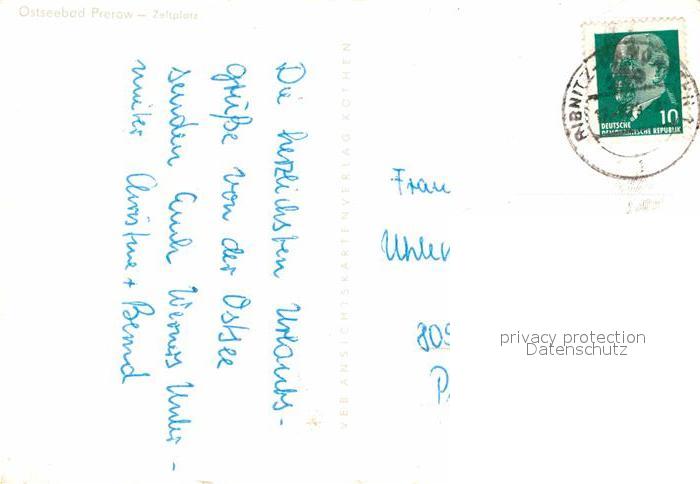 Ostseebad Prerow – Zeltplatz
Die herzlichsten Urlaubs-
grüße von der Ostsee
senden Euch Werners Unter-
mieter Christine + Bernd
VEB ANSICHTSKARTENVERLAG KÖTHEN
RIBNITZ-
10
DEUTSCHE
DEMOKRATISCHE REPUBLIK
Frau
privacy protection
Datenschutz